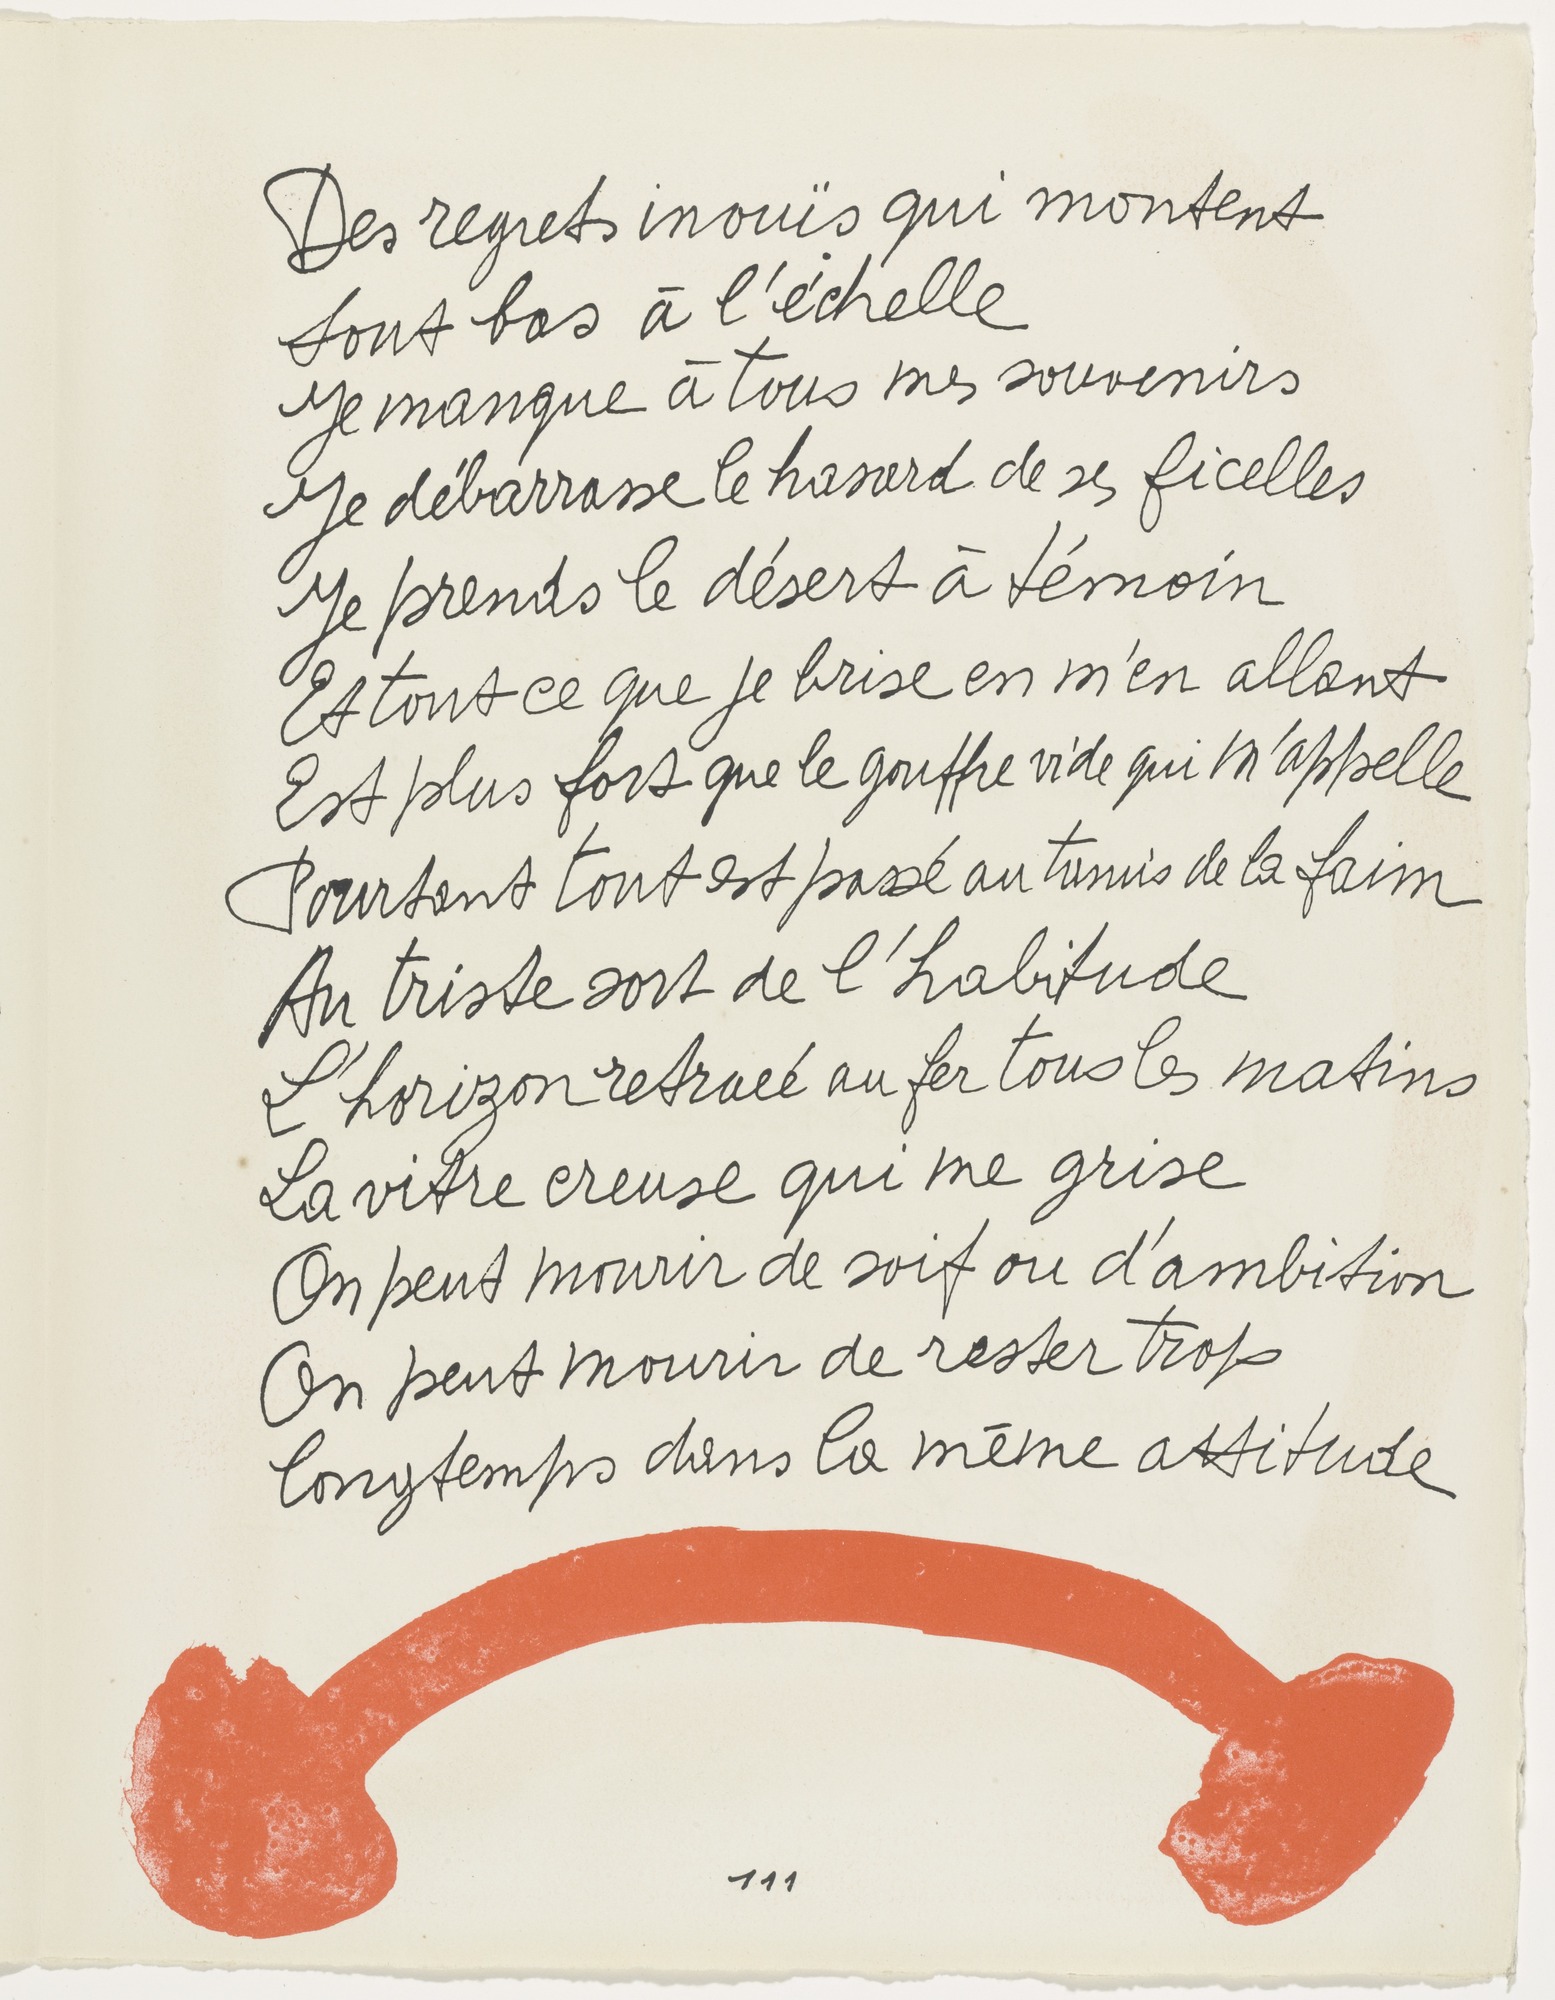 Des regrets inouïs qui montent
tout bas à l'échelle
Je manque à tous mes souvenirs
Je débarrasse le hasard de ses ficelles
Je prends le désert à témoin
Et tout ce que je brise en m'en allant
Est plus fort que le gouffre vide qui m'appelle
Pourtant tout est passé au tamis de la faim
Au triste sort de l'habitude
L'horizon retracé au fer tous les matins
La vitre creuse qui me grise
On peut mourir de soif ou d'ambition
On peut mourir de rester trop
longtemps dans la même attitude
111